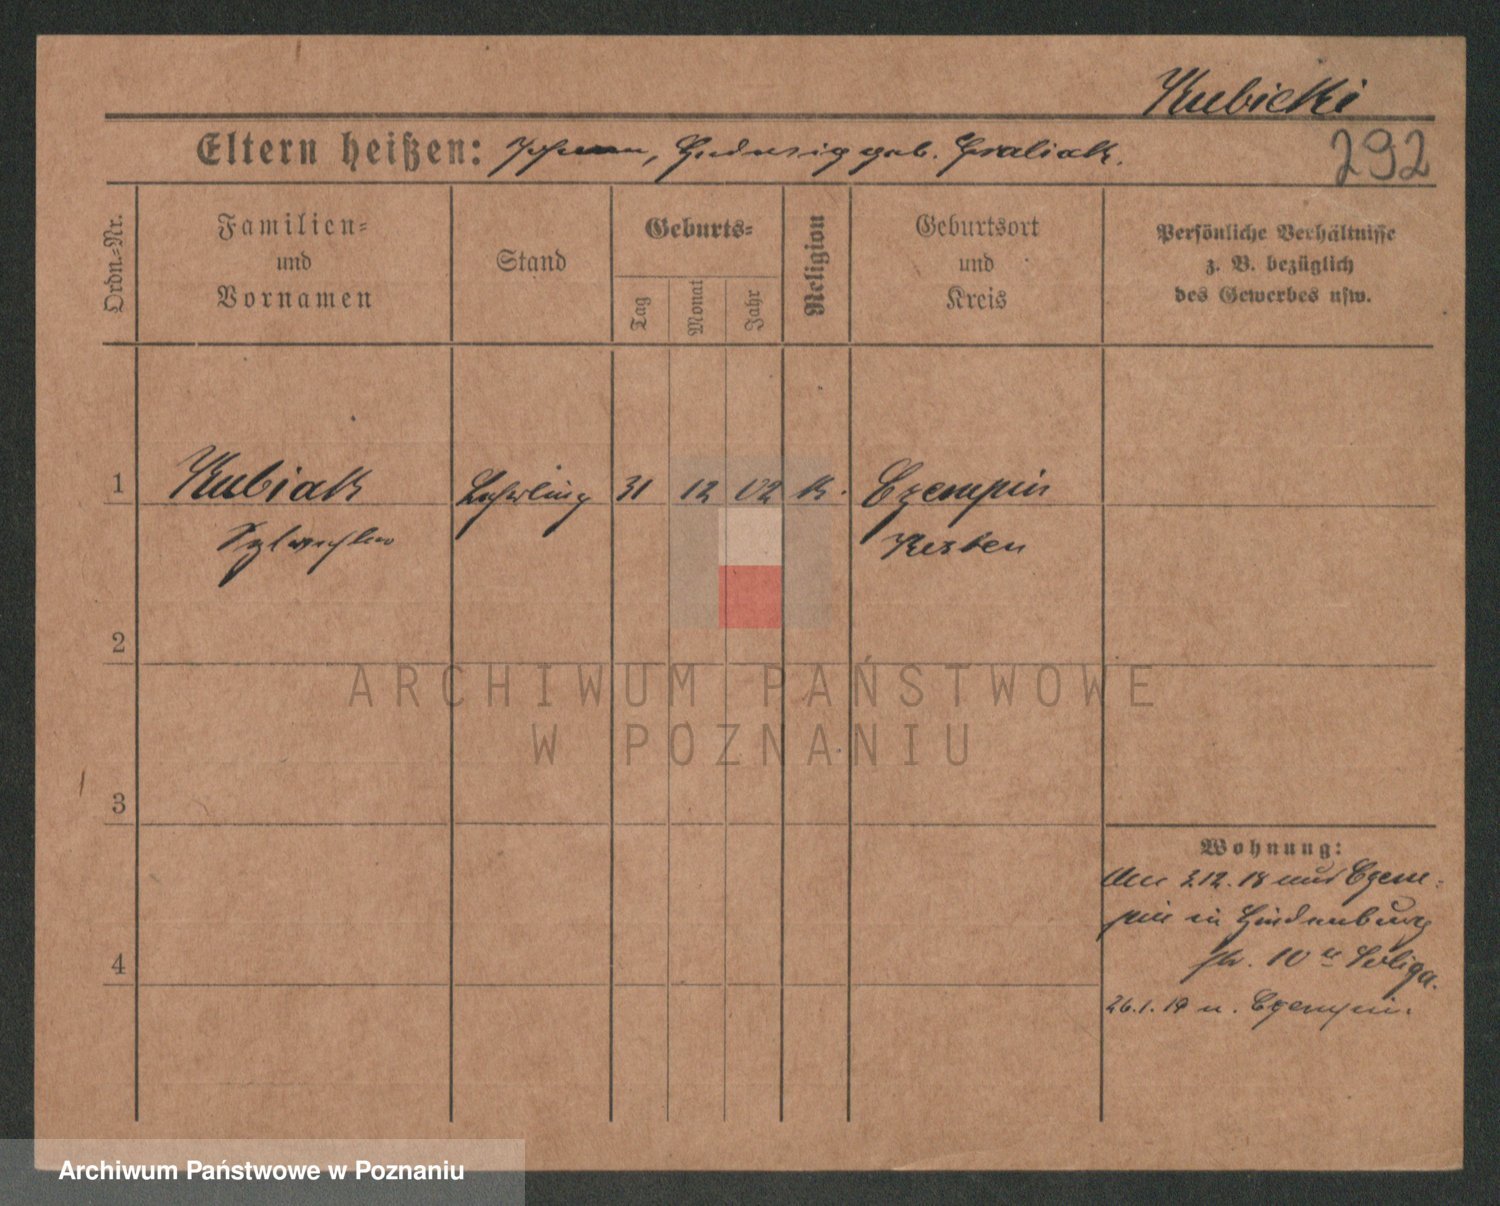 Kubicki
292
Eltern heißen: Johann, Hedwig geb. Graliak.
Ordn.-Nr.
Familien-
und
Vornamen
Stand
Geburts-
Tag
Monat
Jahr
Religion
Geburtsort
und
Kreis
Persönliche Verhältnisse
z. B. bezüglich
des Gewerbes usw.
1 Kubiak Lehrling 31 12 02 K. Czempin
Sylvester Kosten
2
ARCHIWUM PAŃSTWOWE
W POZNANIU
3
Wohnung:
12. 18 aus Czem-
pin in Hindenburg
str. 10
4
26.1.19 n. Czempin.
Archiwum Państwowe w Poznaniu